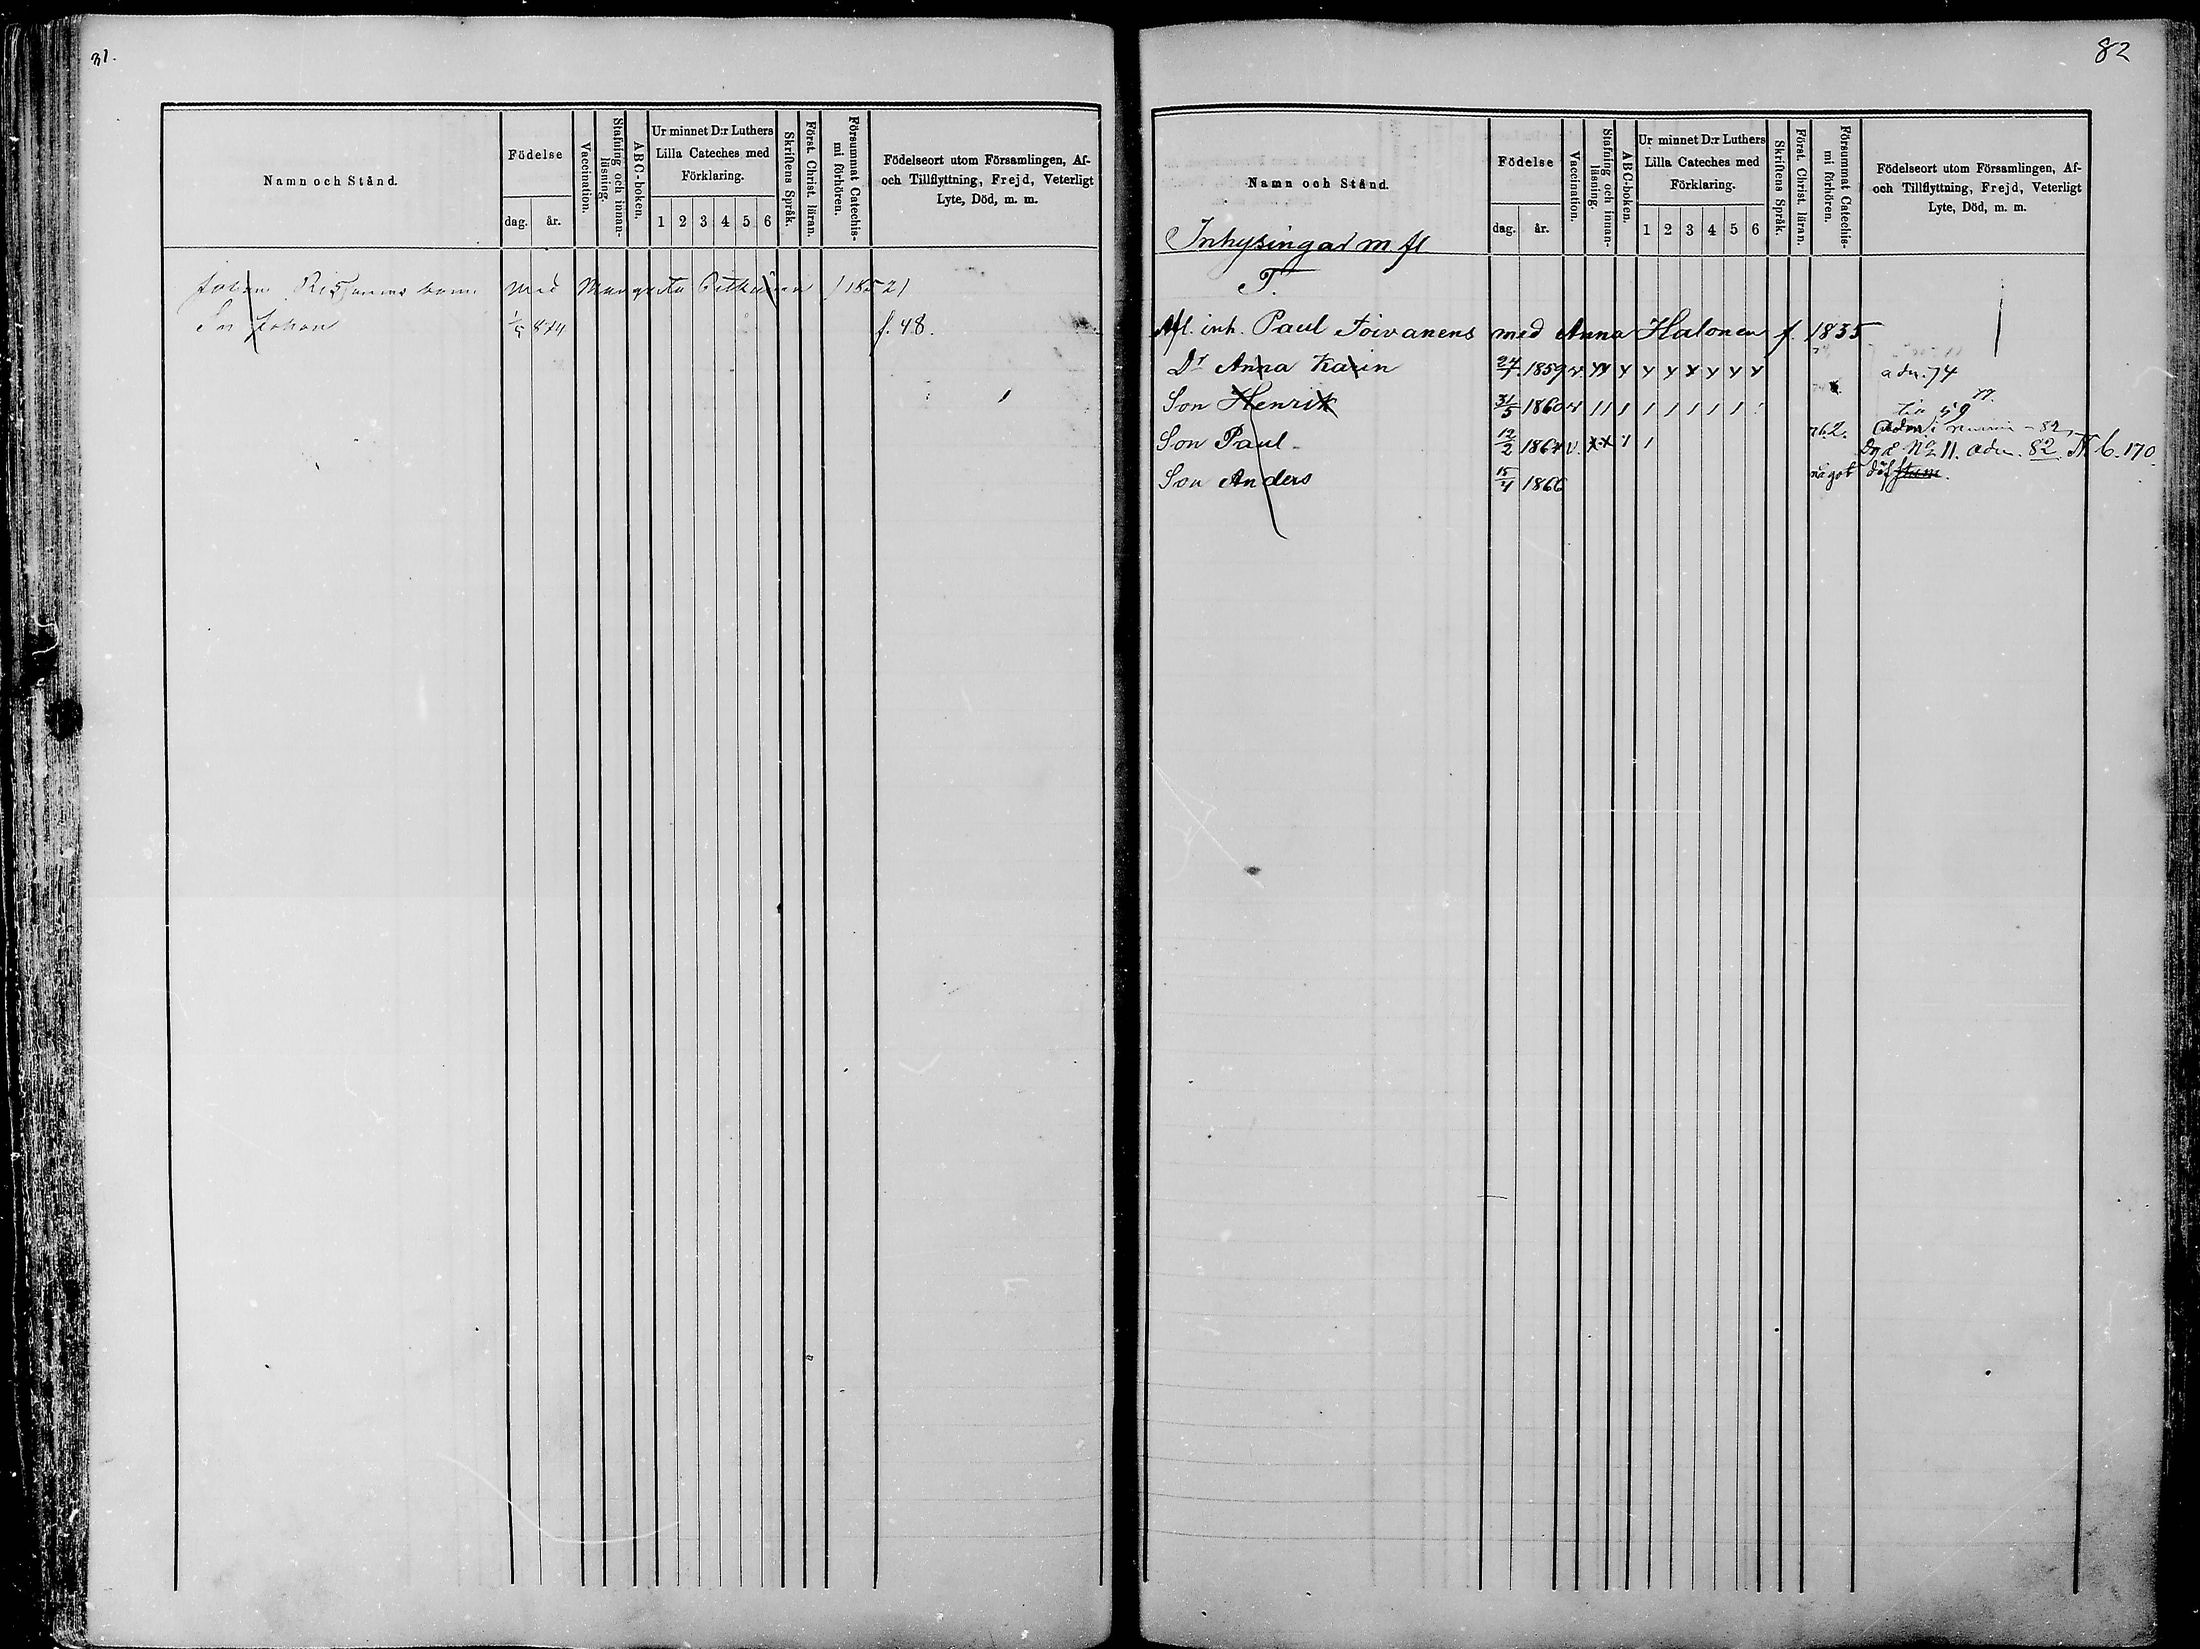 81.
Namn och Stånd.
Födelse
dag.
år.
Vaccination.
Stafning och innan-
läsning.
ABC-boken.
Ur minnet D:r Luthers
Lilla Cateches med
Förklaring.
1 2 3 4 5 6
Skriftens Språk.
Först. Christ. läran.
Försummat Catechis-
mi förhören.
Födelseort utom Församlingen, Af-
och Tillflyttning, Frejd, Veterligt
Lyte, Död, m. m.
Johan Rissanens barn med Margreta f 1852
Sn Johan 1/5 874 f. 48.
82
Namn och Stånd.
Inhysingar m fl
Födelse
dag.
år.
Vaccination.
Stafning och innan-
läsning.
ABC-boken.
Ur minnet D:r Luthers
Lilla Cateches med
Förklaring.
1 2 3 4 5 6
Skriftens Språk.
Först. Christ. läran.
Försummat Catechis-
mi förhören.
Födelseort utom Församlingen, Af-
och Tillflyttning, Frejd, Veterligt
Lyte, Död, m. m.
T.
Afl. inh. Paul Toivanens med Anna Halonen f. 1835
Dr Anna Karin 24/7 1859 v. adm. 74
Son Henrik 31/5 1860 v 59
Son Paul 12/2 1864 v. 762. No 11. adm. 82 N b. 170
Son Anders 15/4 1866 något döf